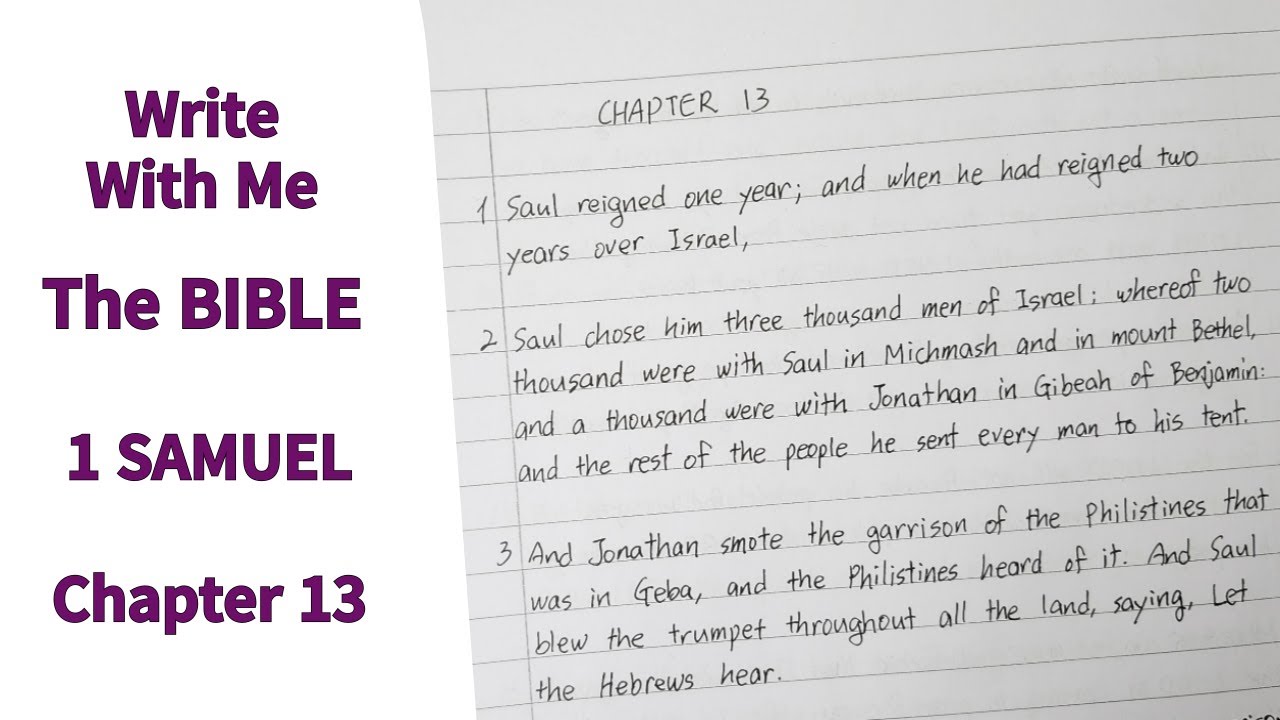 Write
With Me
The BIBLE
1 SAMUEL
Chapter 13
CHAPTER 13
1 Saul reigned one year; and when he had reigned two
years over Israel,
2 Saul chose him three thousand men of Israel; whereof two
thousand were with Saul in Michmash and in mount Bethel,
and a thousand were with Jonathan in Gibeah of Benjamin:
and the rest of the people he sent every man to his tent.
3 And Jonathan smote the garrison of the Philistines that
was in Geba, and the Philistines heard of it. And Saul
blew the trumpet throughout all the land, saying, Let
the Hebrews hear.